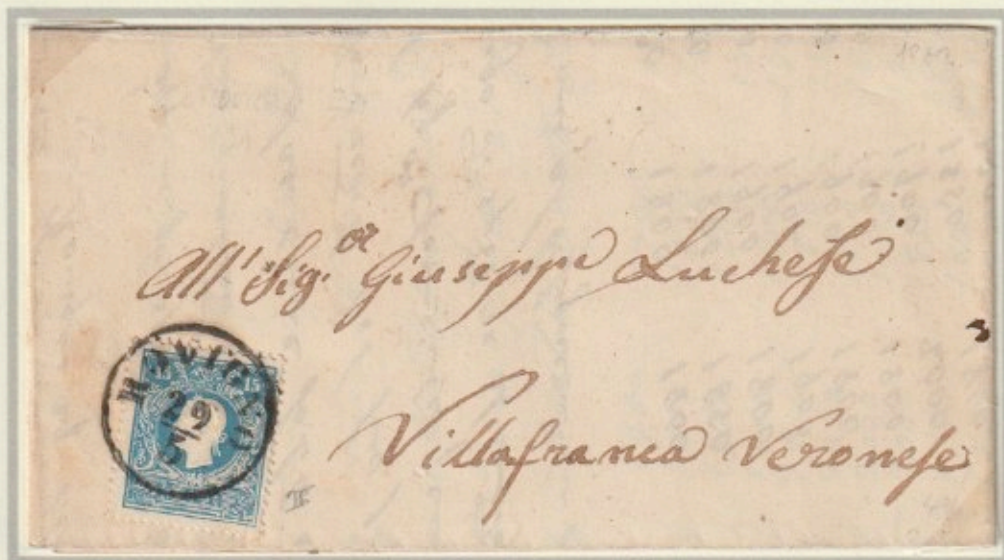 All' Sig.or Giuseppe Luchese
Villafranca Veronese
15
29
II